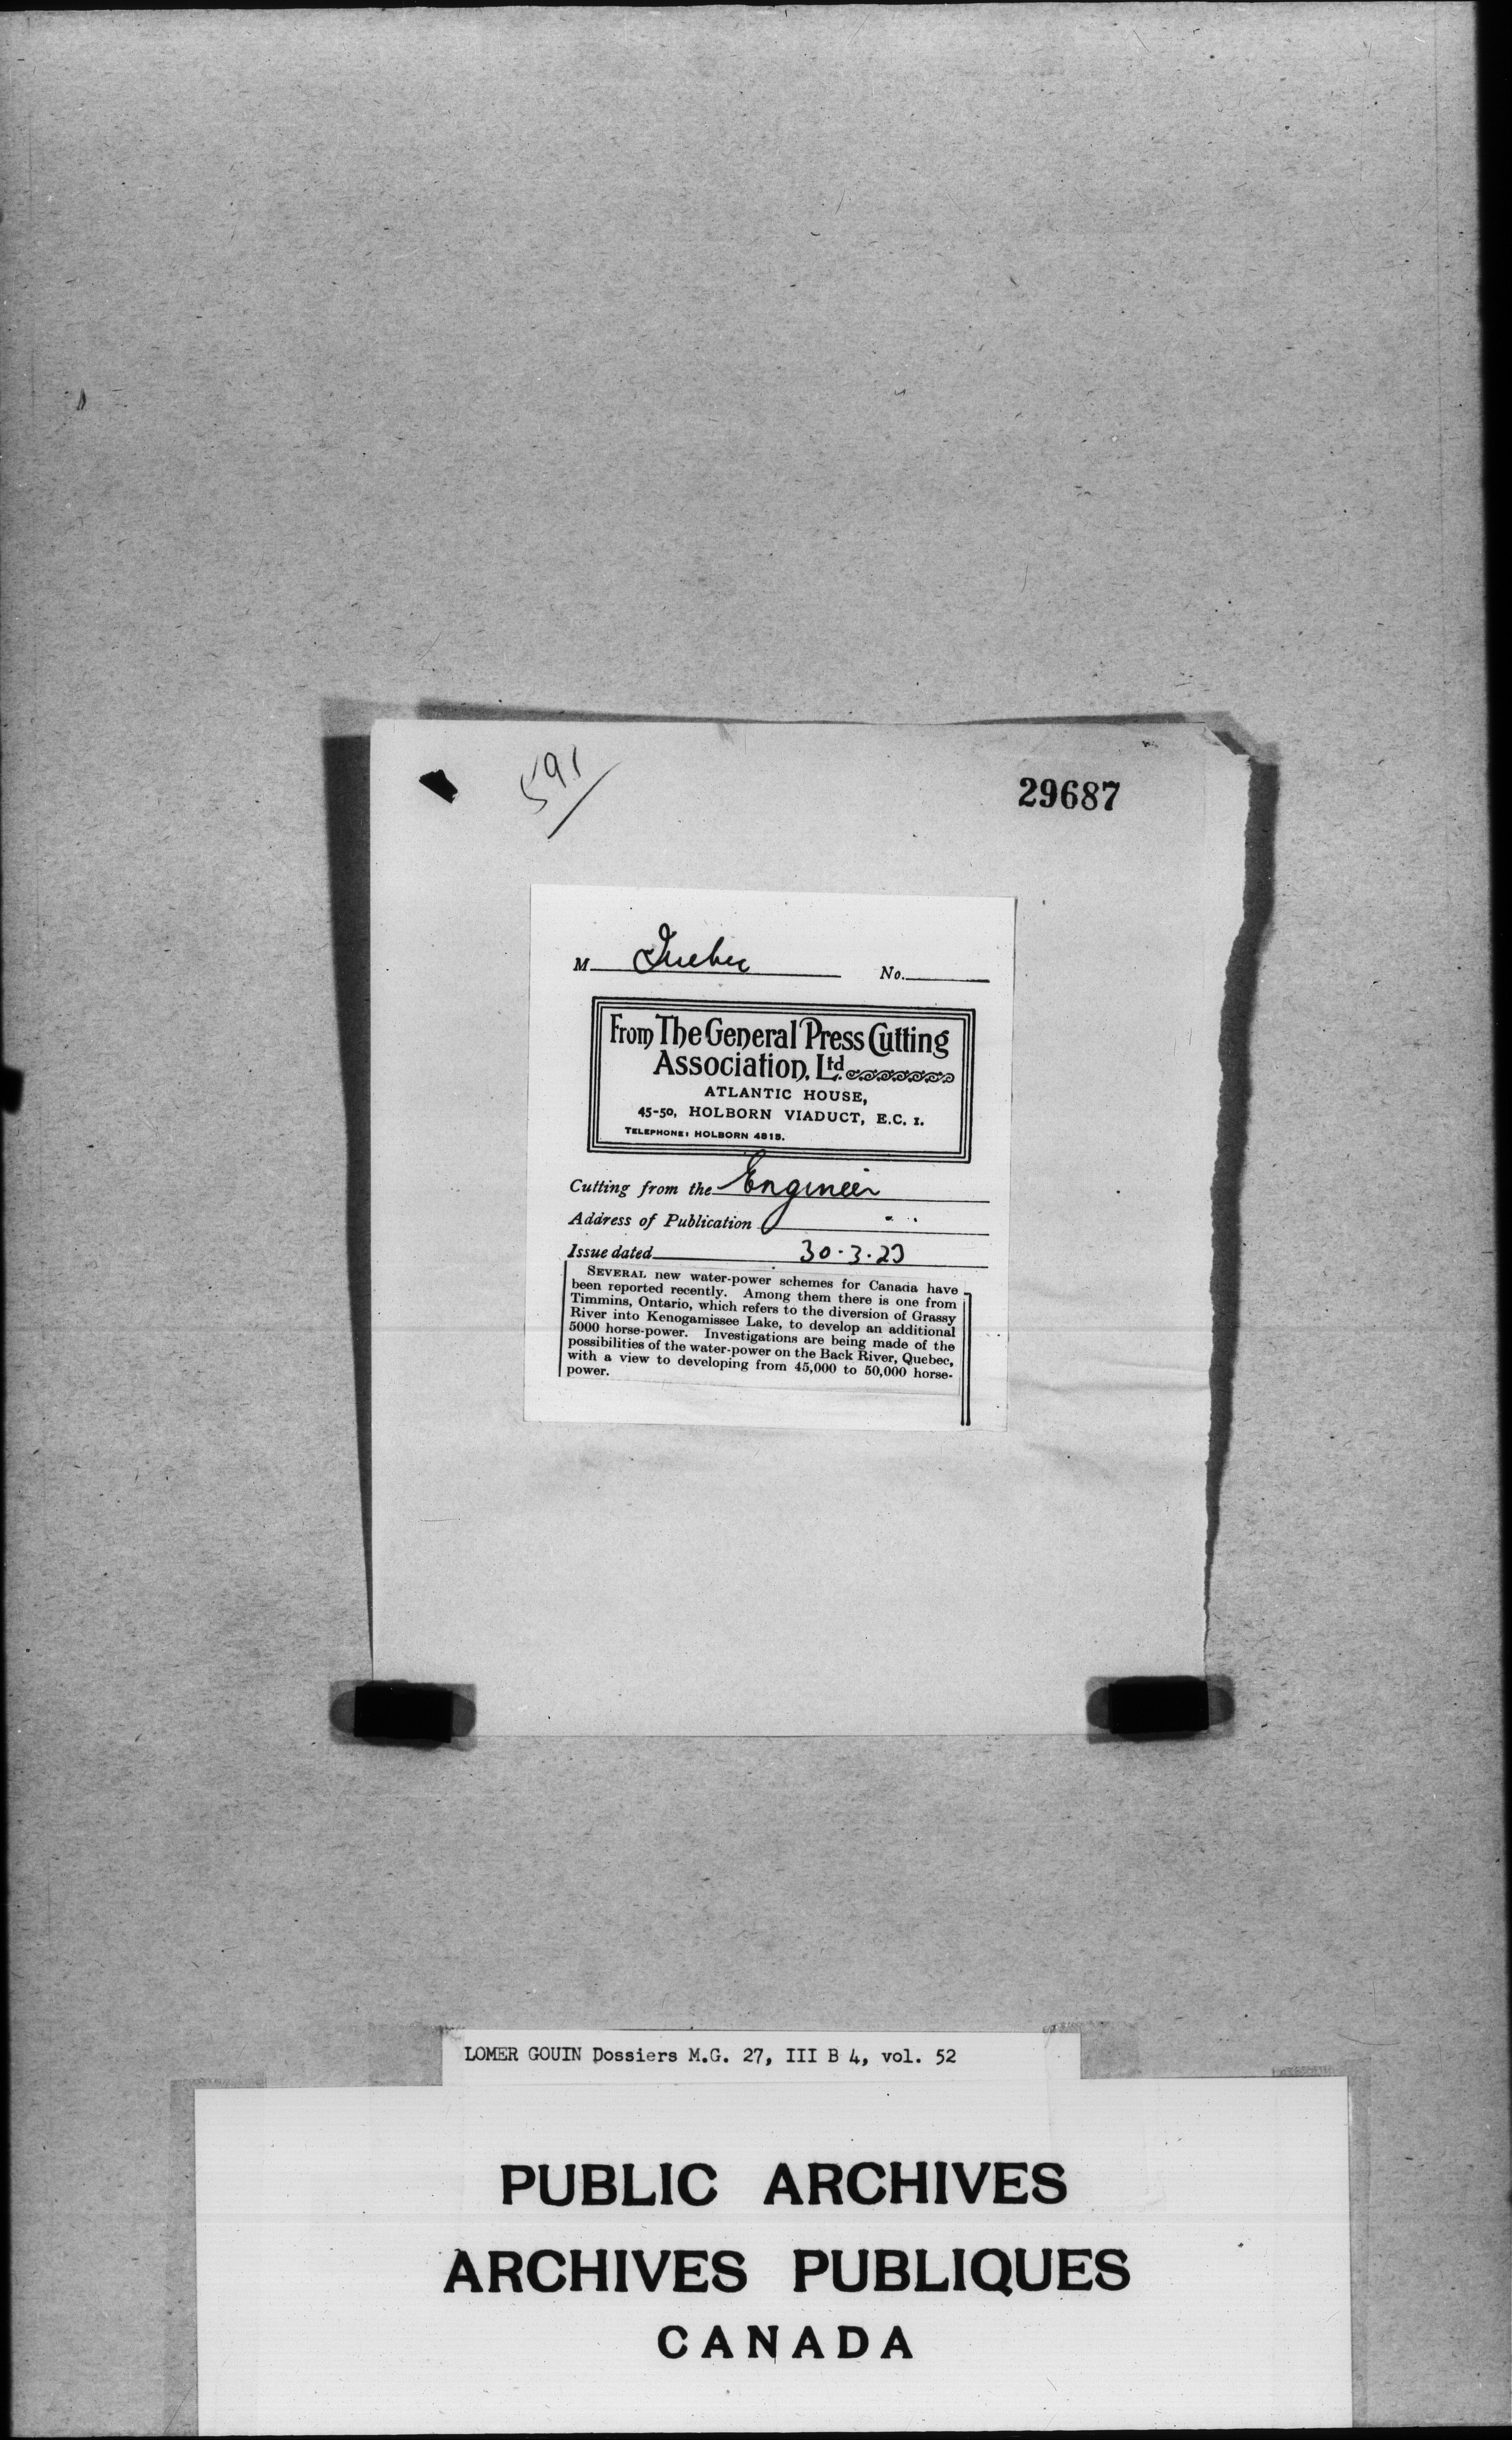 591
29687
M Quebec No.
From The General Press Cutting
Association, Ltd.
ATLANTIC HOUSE,
45-50, HOLBORN VIADUCT, E.C. 1.
TELEPHONE: HOLBORN 4815.
Cutting from the Engineer
Address of Publication
Issue dated 30.3.23
SEVERAL new water-power schemes for Canada have
been reported recently. Among them there is one from
Timmins, Ontario, which refers to the diversion of Grassy
River into Kenogamissee Lake, to develop an additional
5000 horse-power. Investigations are being made of the
possibilities of the water-power on the Back River, Quebec,
with a view to developing from 45,000 to 50,000 horse-
power.
LOMER GOUIN Dossiers M.G. 27, III B 4, vol. 52
PUBLIC ARCHIVES
ARCHIVES PUBLIQUES
CANADA